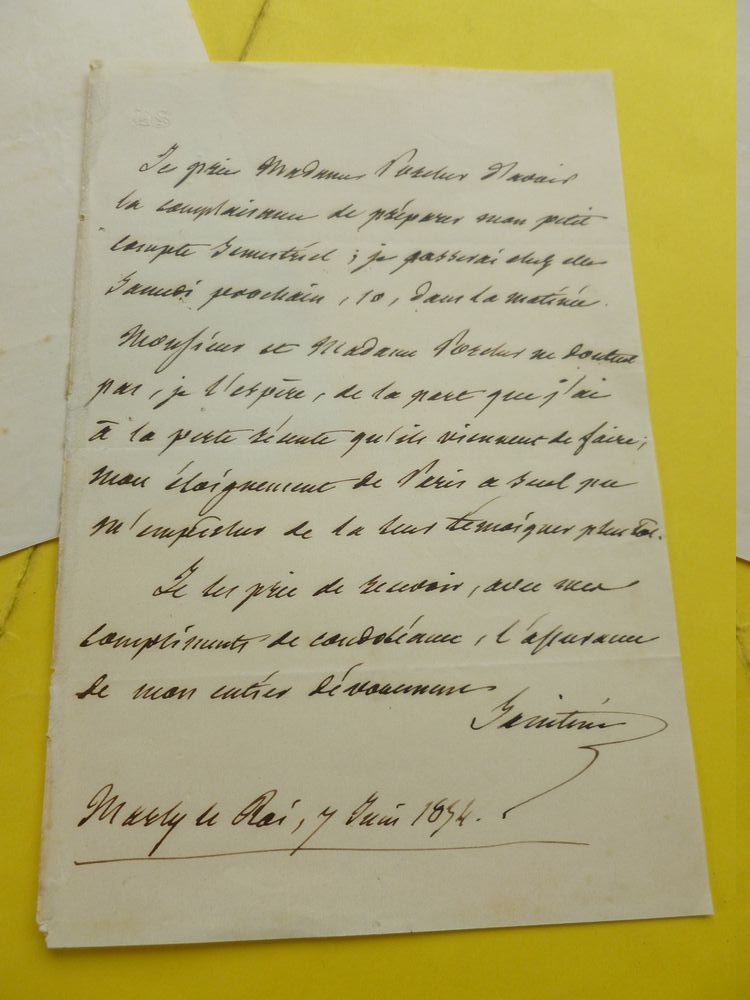 Je prie Madame Porcher d'avoir
la complaisance de préparer mon petit
compte semestriel ; je passerai chez elle
Samedi prochain, 10, dans la matinée.
Monsieur et Madame Porcher ne doutent
pas, je l'espère, de la part que j'ai
à la perte récente qu'ils viennent de faire ;
mon éloignement de Paris a seul pu
m'empêcher de la leur témoigner plus tôt.
Je les prie de recevoir, avec mes
compliments de condoléance, l'assurance
de mon entier dévouement
Saintine
Marly le Roi, 7 Juin 1854.